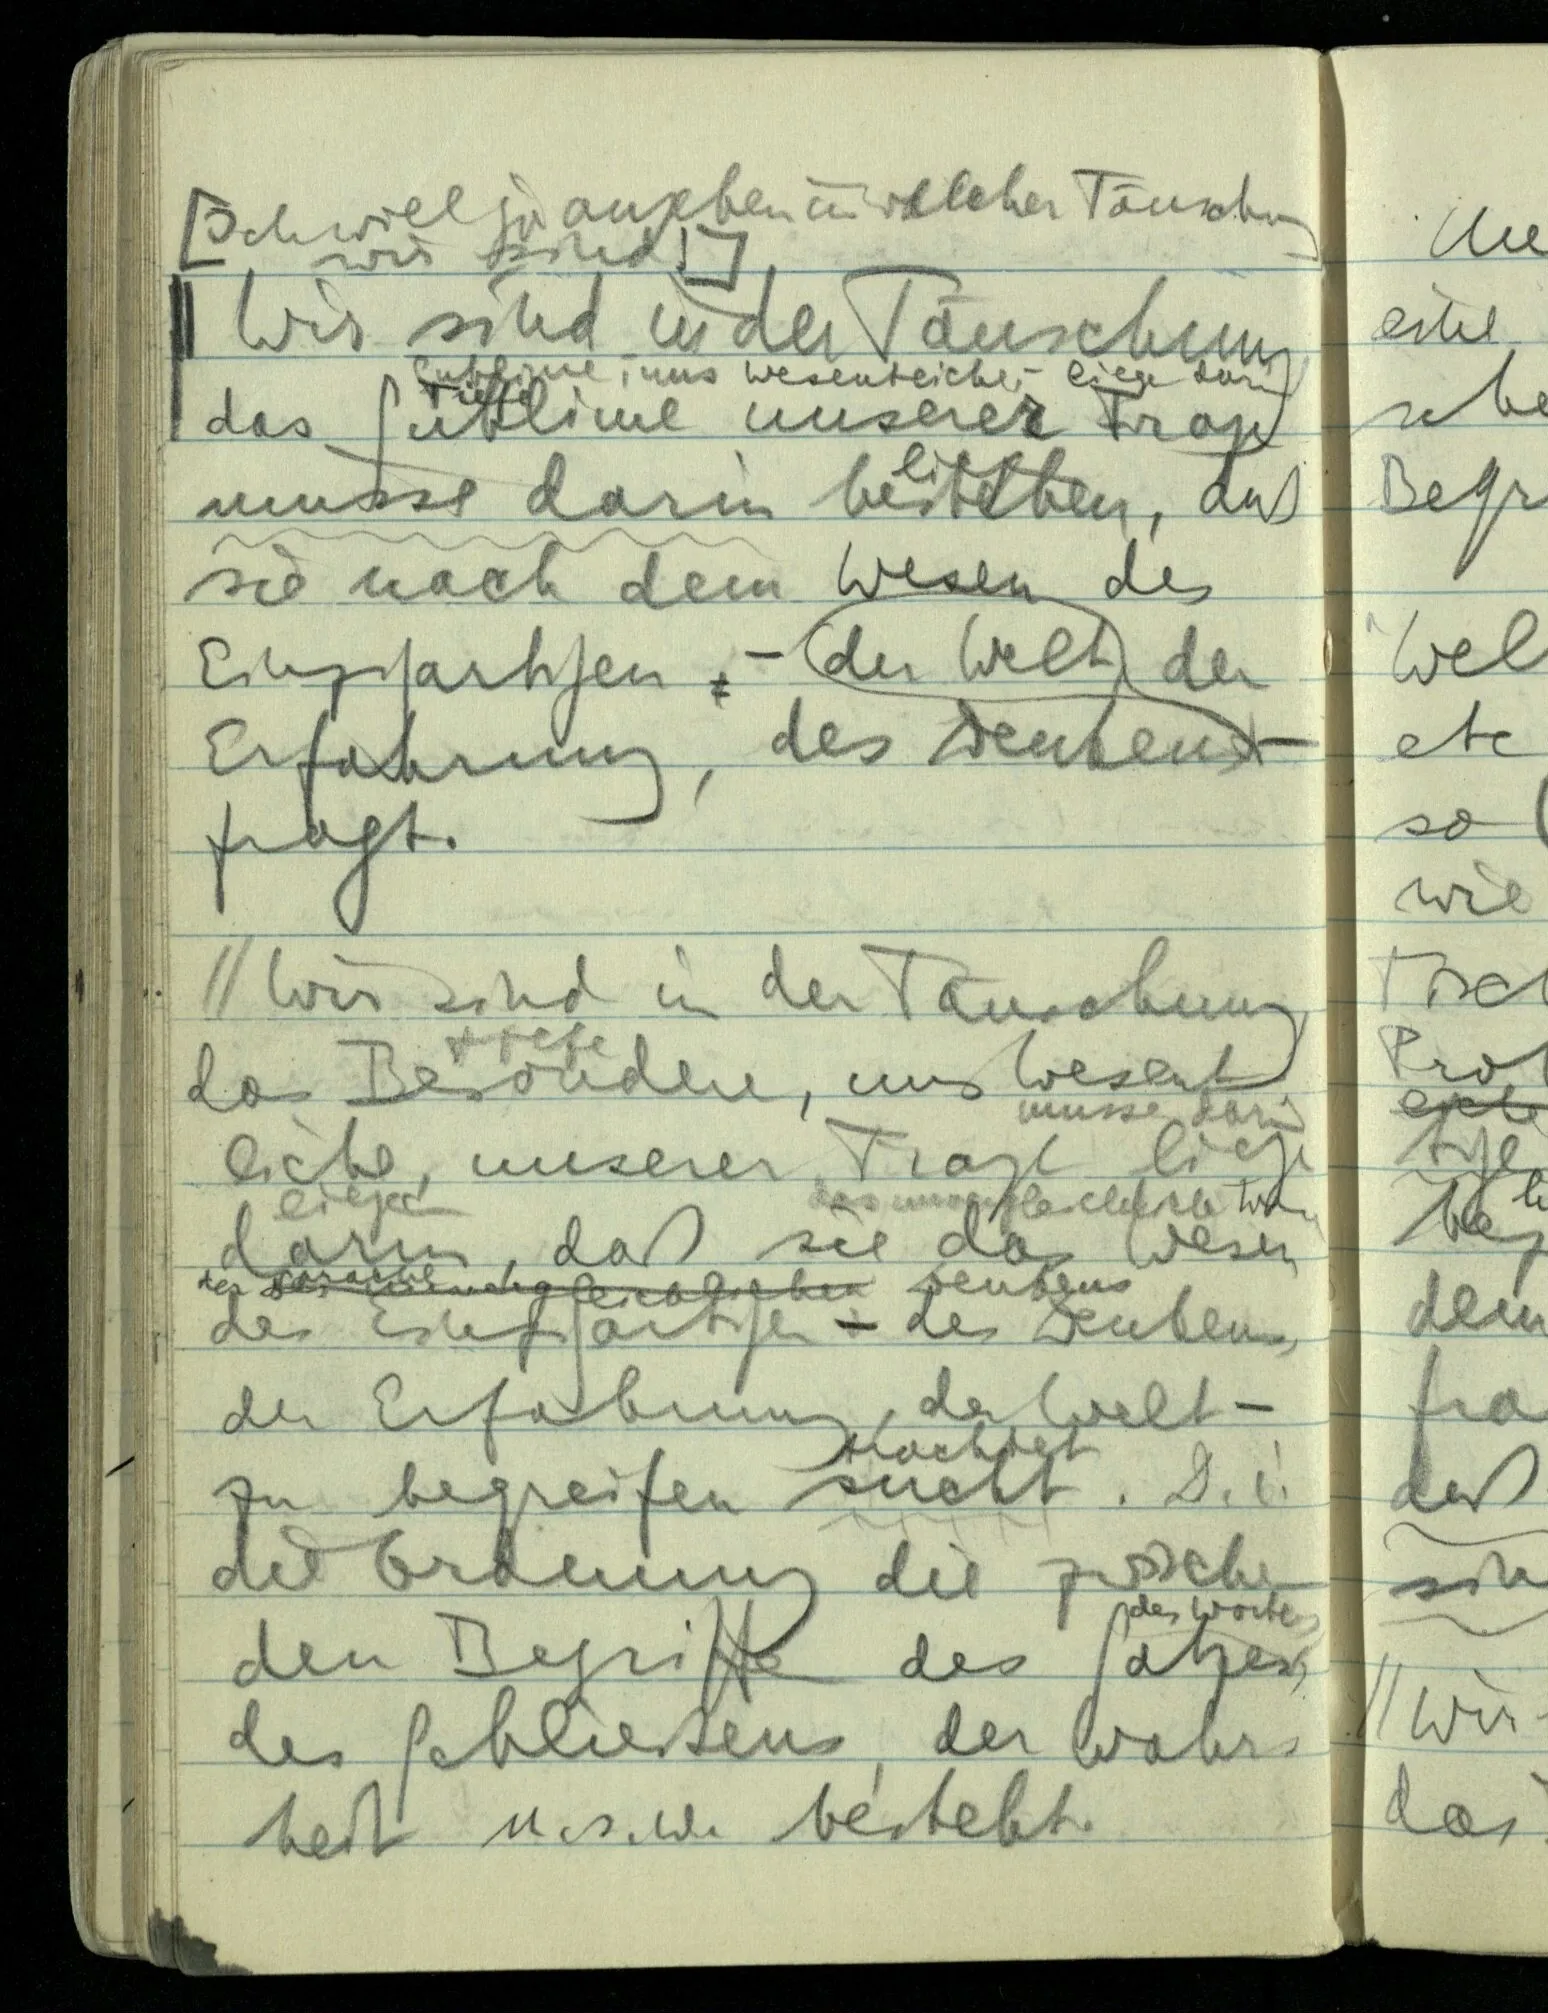 [Ich will ja angeben in welcher Täuschung
wir sind!]
Wir sind in der Täuschung
Sublime, uns wesentliche, liege darin
Tiefe
das Sublime unserer Frage
liege
müsse darin bestehen, daß
sie nach dem Wesen des
Einzigartigen – der Welt, der
Erfahrung, des Denkens –
fragt.
// Wir sind in der Täuschung
tiefe
das Besondere, uns Wesent
müsse darin
liche, unserer Frage liege
liegen das unvergleichliche
darin, daß sie das Wesen
der Sprache Denkens
des Einzigartigen – des Denkens,
der Erfahrung, der Welt –
trachtet
zu begreifen sucht. D.i.
die Ordnung die zwischen
des Wortes,
den Begriffen des Satzes,
des Schließens, der Wahr-
heit u.s.w. besteht.
Die
eine
Begr
Wel
etc
so (
wie
Tisch
dem
fra
daß
// Wir
das